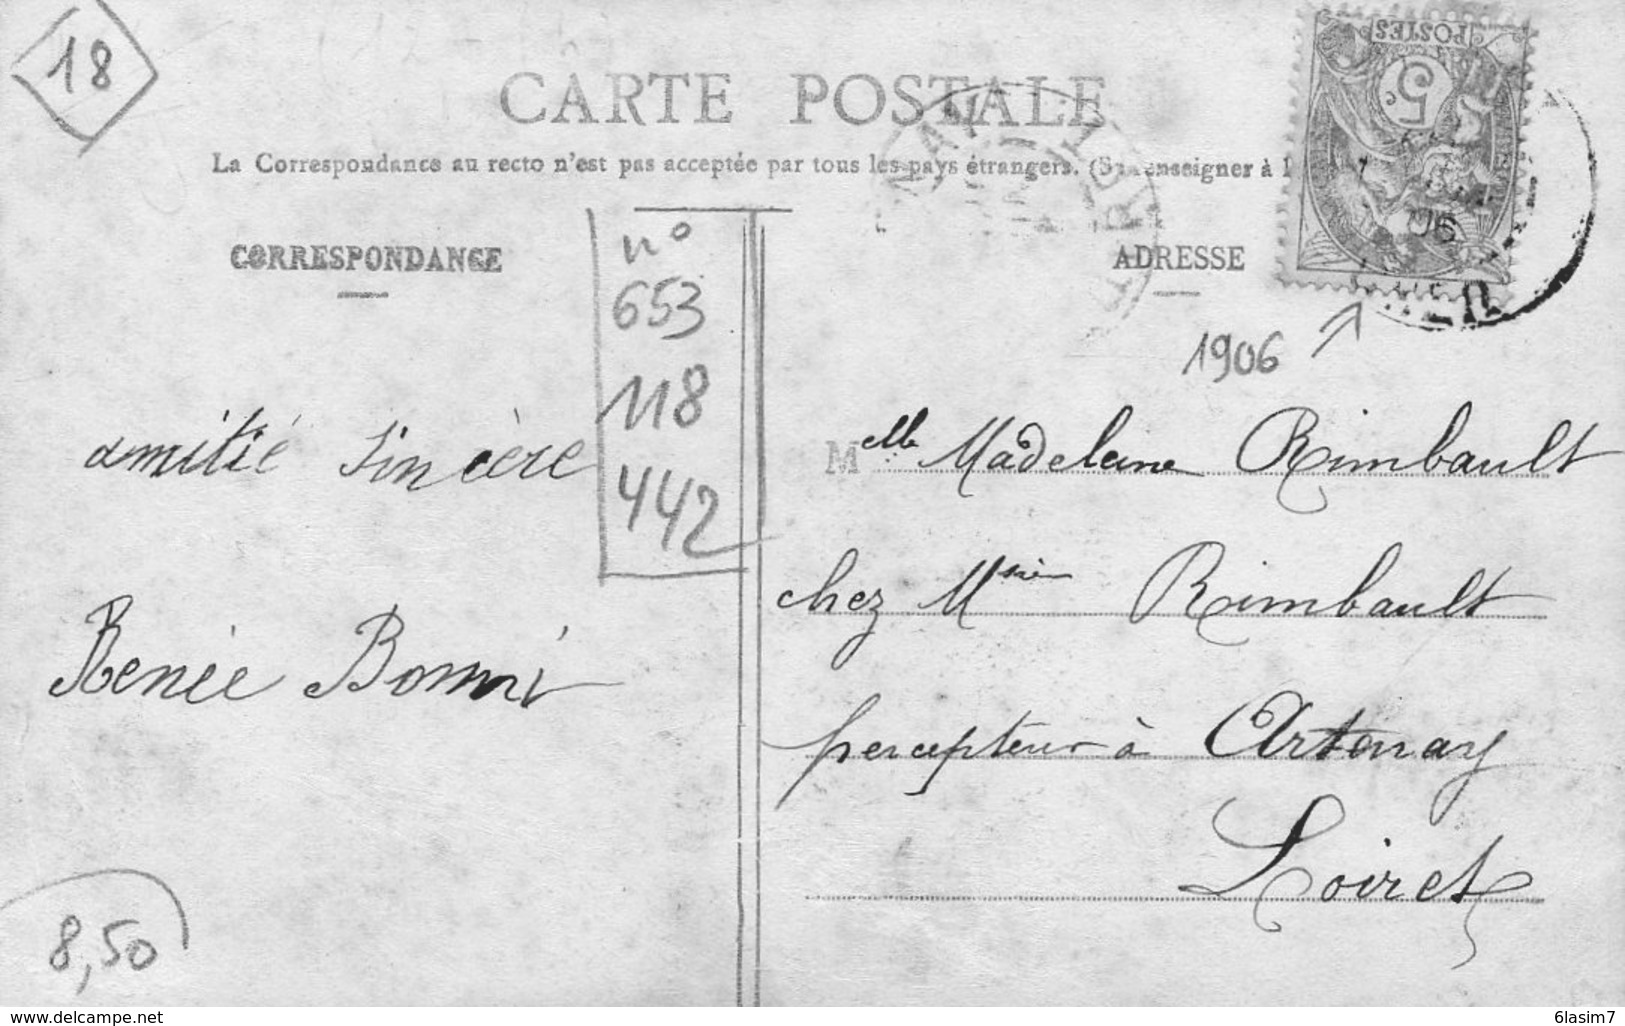 18
CARTE POSTALE
La Correspondance au recto n'est pas acceptée par tous les pays étrangers. (Se renseigner à l
POSTES
5c
06
CORRESPONDANCE
ADRESSE
n°
653
118
442
1906
amitié sincère
Renée
Mlle Madeleine Rimbault
chez Rimbault
percepteur à Artenay
Loiret
8,50
www.delcampe.net
6lasim7